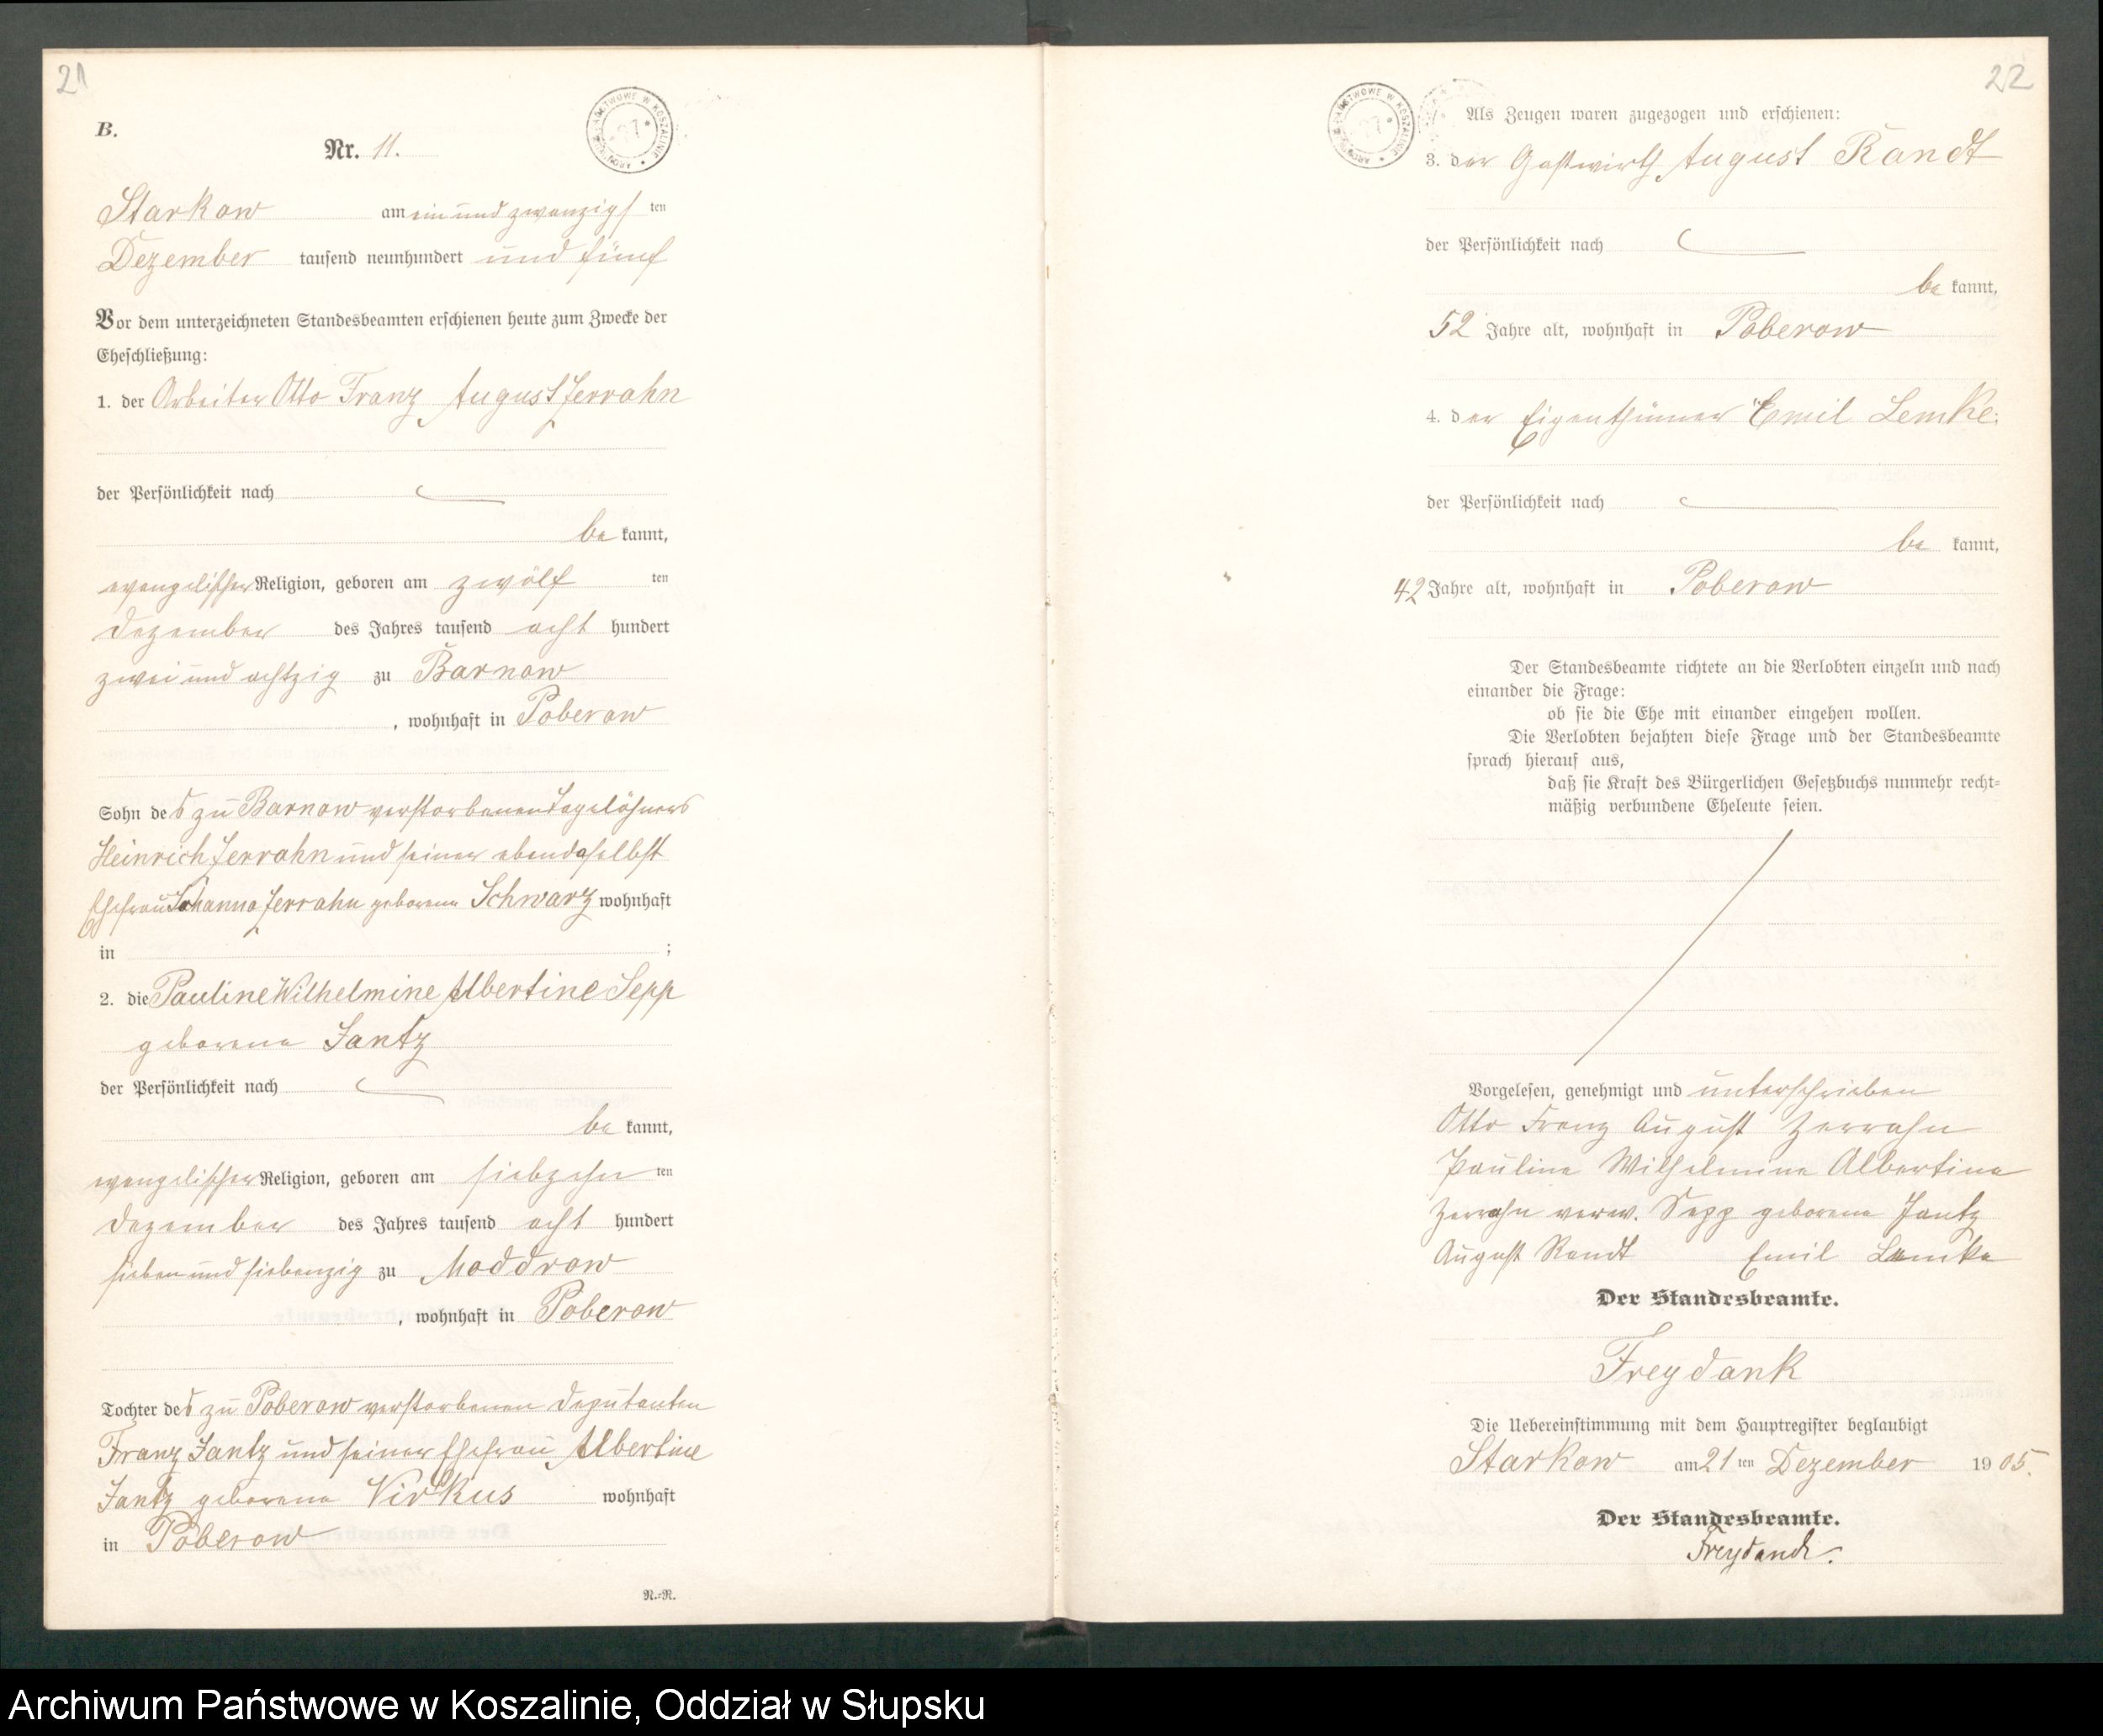 21
B.
Nr. 11.
ARCHIWUM PAŃSTWOWE W KOSZALINIE
Starkow am ein und zwanzigsten
Dezember tausend neunhundert und fünf
Vor dem unterzeichneten Standesbeamten erschienen heute zum Zwecke der
Eheschließung:
1. der Arbeiter Otto Franz August Zerrahn
der Persönlichkeit nach
be kannt,
evangelischer Religion, geboren am zwölf ten
Dezember des Jahres tausend acht hundert
zwei und achtzig zu Barnow
, wohnhaft in Poberow
Sohn des zu Barnow verstorbenen Tagelöhners
Heinrich Zerrahn und seiner ebendaselbst
Ehefrau Johanna Zerrahn geborene Schwarz wohnhaft
in ;
2. die Pauline Wilhelmine Albertine Sepp
geborene Jantz
der Persönlichkeit nach
be kannt,
evangelischer Religion, geboren am siebzehn ten
Dezember des Jahres tausend acht hundert
sieben und siebenzig zu Moddrow
, wohnhaft in Poberow
Tochter des zu Poberow verstorbenen Deputanten
Franz Jantz und seiner Ehefrau Albertine
Jantz geborene Virkus wohnhaft
in Poberow
R.-R.
22
ARCHIWUM PAŃSTWOWE W KOSZALINIE
Als Zeugen waren zugezogen und erschienen:
3. der Gastwirth August Randt
der Persönlichkeit nach
be kannt,
52 Jahre alt, wohnhaft in Poberow
4. der Eigenthümer Emil Lemke.
der Persönlichkeit nach
be kannt,
42 Jahre alt, wohnhaft in Poberow
Der Standesbeamte richtete an die Verlobten einzeln und nach
einander die Frage:
ob sie die Ehe mit einander eingehen wollen.
Die Verlobten bejahten diese Frage und der Standesbeamte
sprach hierauf aus,
daß sie Kraft des Bürgerlichen Gesetzbuchs nunmehr recht-
mäßig verbundene Eheleute seien.
Vorgelesen, genehmigt und unterschrieben
Otto Franz August Zerrahn
Pauline Wilhelmine Albertine
Zerrahn verw. Sepp geborene Jantz
August Randt Emil Lemke
Der Standesbeamte.
Freydank
Die Uebereinstimmung mit dem Hauptregister beglaubigt
Starkow am 21 ten Dezember 19 05.
Der Standesbeamte.
Freydank.
Archiwum Państwowe w Koszalinie, Oddział w Słupsku